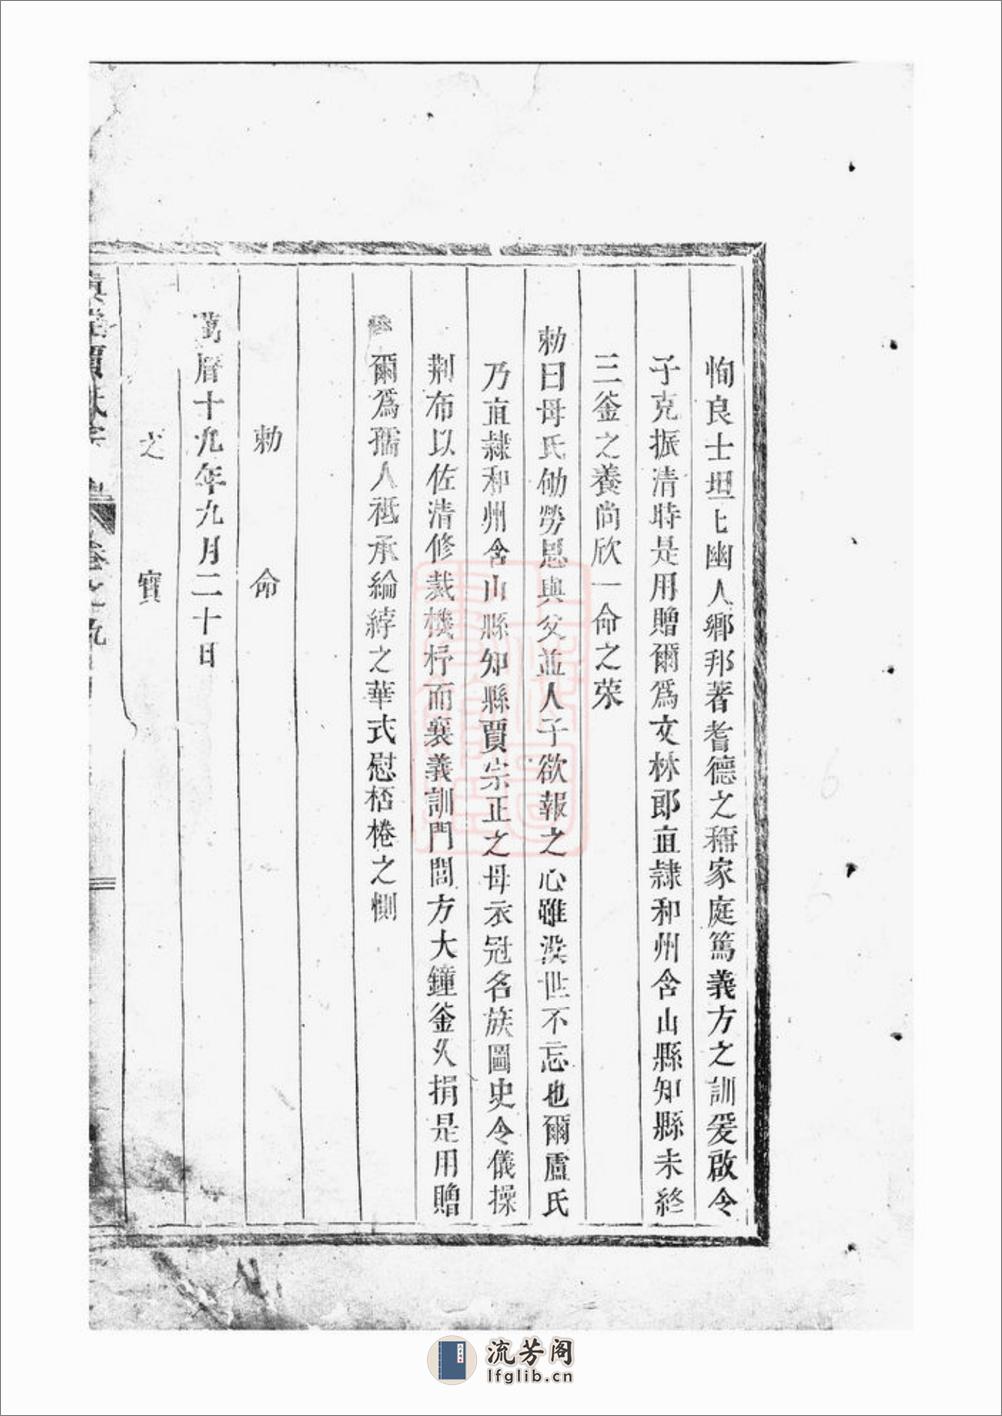 恂良士坦七幽人鄉邦著耆德之稱家庭篤義方之訓爰啟令
子克振清時是用贈爾爲文林郎直隸和州含山縣知縣未終
三釜之養尚欣一命之荣
勅曰母氏劬勞恩與父並人子欲報之心雖没世不忘也爾盧氏
乃直隸和州含山縣知縣賈宗正之母衣冠名族圖史令儀操
荆布以佐清修裁機杼而襄義訓門閭方大鐘釜乆捐是用贈
爾爲孺人祗承綸綍之華式慰桮棬之惻
勅命
萬曆十九年九月二十日
之寶
賈氏
卷之九
流芳阁
lfglib.cn